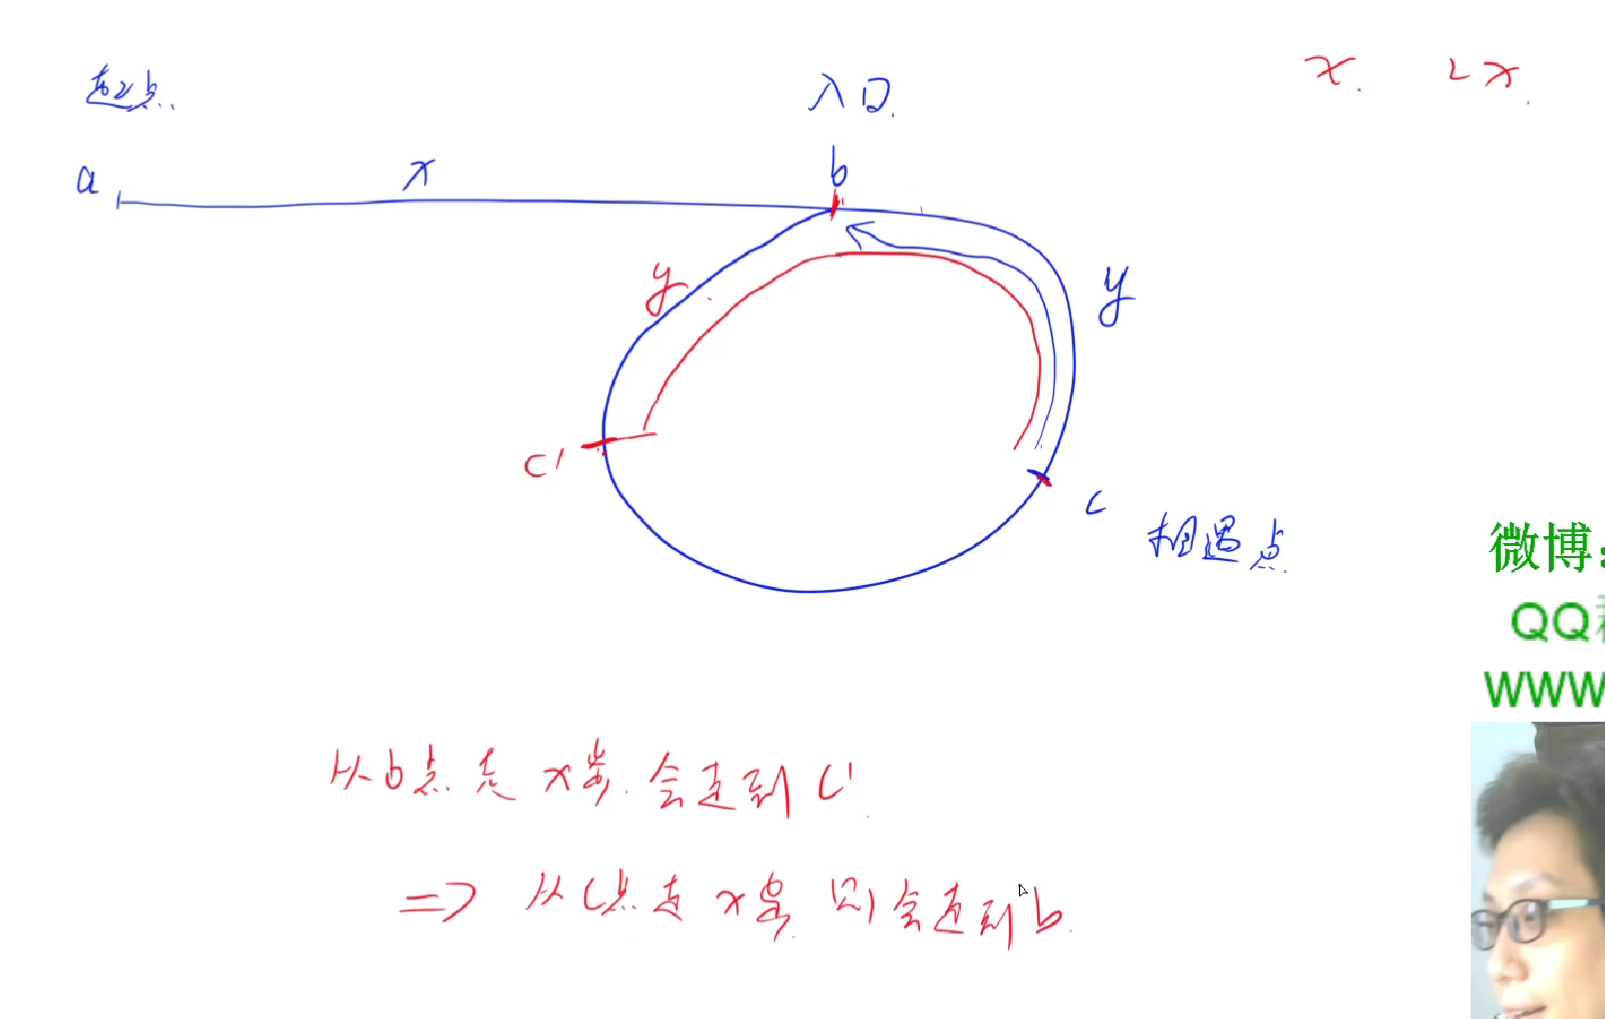 起点.
入口.
x. 2x.
a
x
b
y
y
c'
c
相遇点.
微博:
QQ
www
从b点走 x步.会走到 c'.
=> 从c点走 x步.则会走到b.